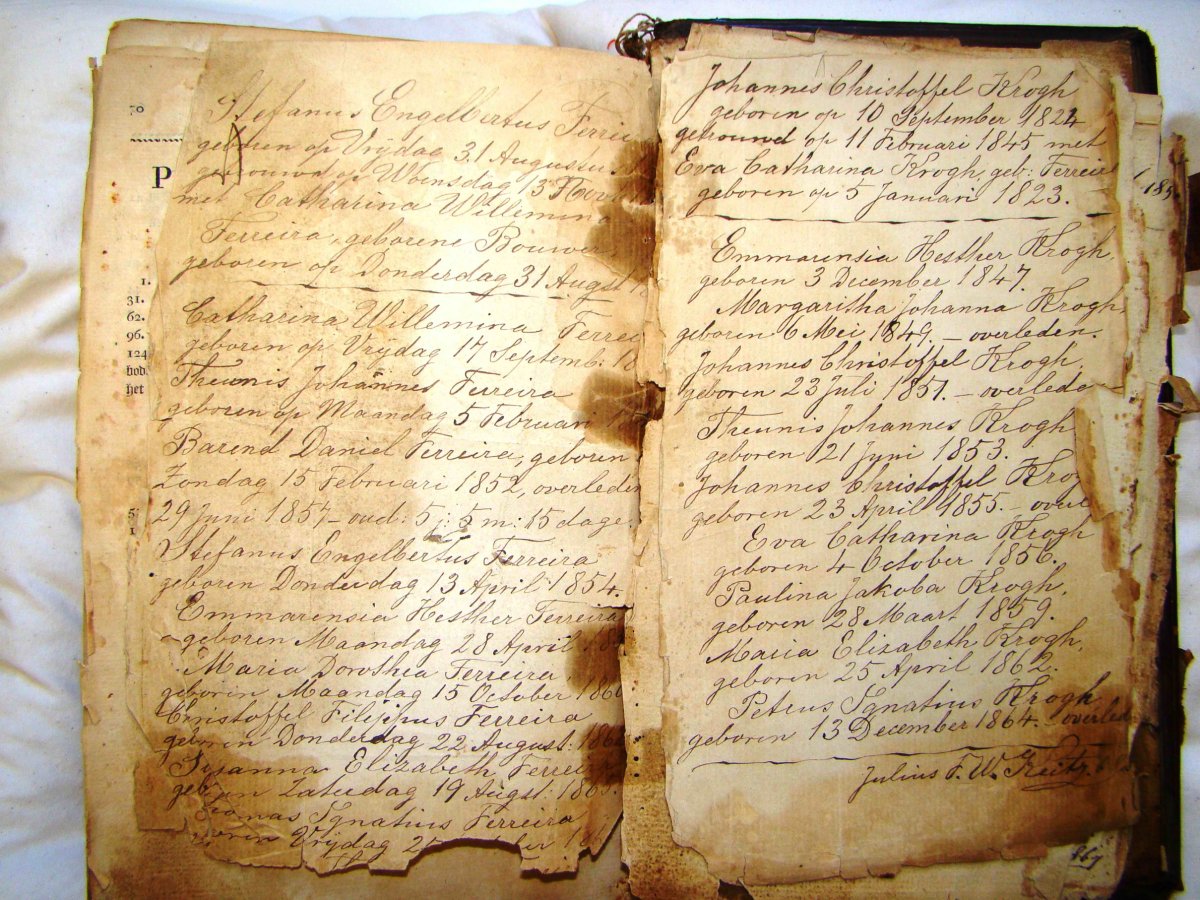 70
P
1.
31.
62.
96.
124
hod.
het
5
1
Stefanus Engelbertus
geboren op Vrijdag 31 Augustus
getrouwd op Woensdag 13
met Catharina Willemina
Ferreira, geborene Bouwer
geboren op Donderdag 31 Augst
Catharina Willemina
geboren op Vrijdag 17 Septemb.
Theunis Johannes Ferreira
geboren op Maandag 5 Februari
Barend Daniel Ferreira, geboren
Zondag 15 Februari 1852, overleden
29 Juni 1857 – oud: 5 j: 5 m: 15 dage
Stefanus Engelbertus Ferreira
geboren Donderdag 13 April 1854.
Emmarensia Hesther Ferreira
geboren Maandag 28 April
Maria Dorothia Ferreira
geboren Maandag 15 October 1860
Christoffel Filippus Ferreira
geboren Donderdag 22 August:
Susanna Elizabeth Ferreira
geboren Zaterdag 19 Augst:
Thomas Ignatius Ferreira
Vrijdag
Johannes Christoffel Krogh
geboren op 10 September 1824
getrouwd op 11 Februari 1845 met
Eva Catharina Krogh, geb: Ferreira
geboren op 5 Januari 1823.
Emmarensia Hesther Krogh
geboren 3 December 1847.
Margaritha Johanna Krogh,
geboren 6 Mei 1849. – overleden.
Johannes Christoffel Krogh,
geboren 23 Juli 1851. – overleden
Theunis Johannes Krogh
geboren 21 Juni 1853.
Johannes Christoffel Krogh
geboren 23 April 1855. –
Eva Catharina Krogh
geboren 4 October 1856.
Paulina Jakoba Krogh,
geboren 28 Maart 1859.
Maria Elizabeth Krogh,
geboren 25 April 1862.
Petrus Ignatius Krogh
geboren 13 December 1864. overleden
Julius F. W.